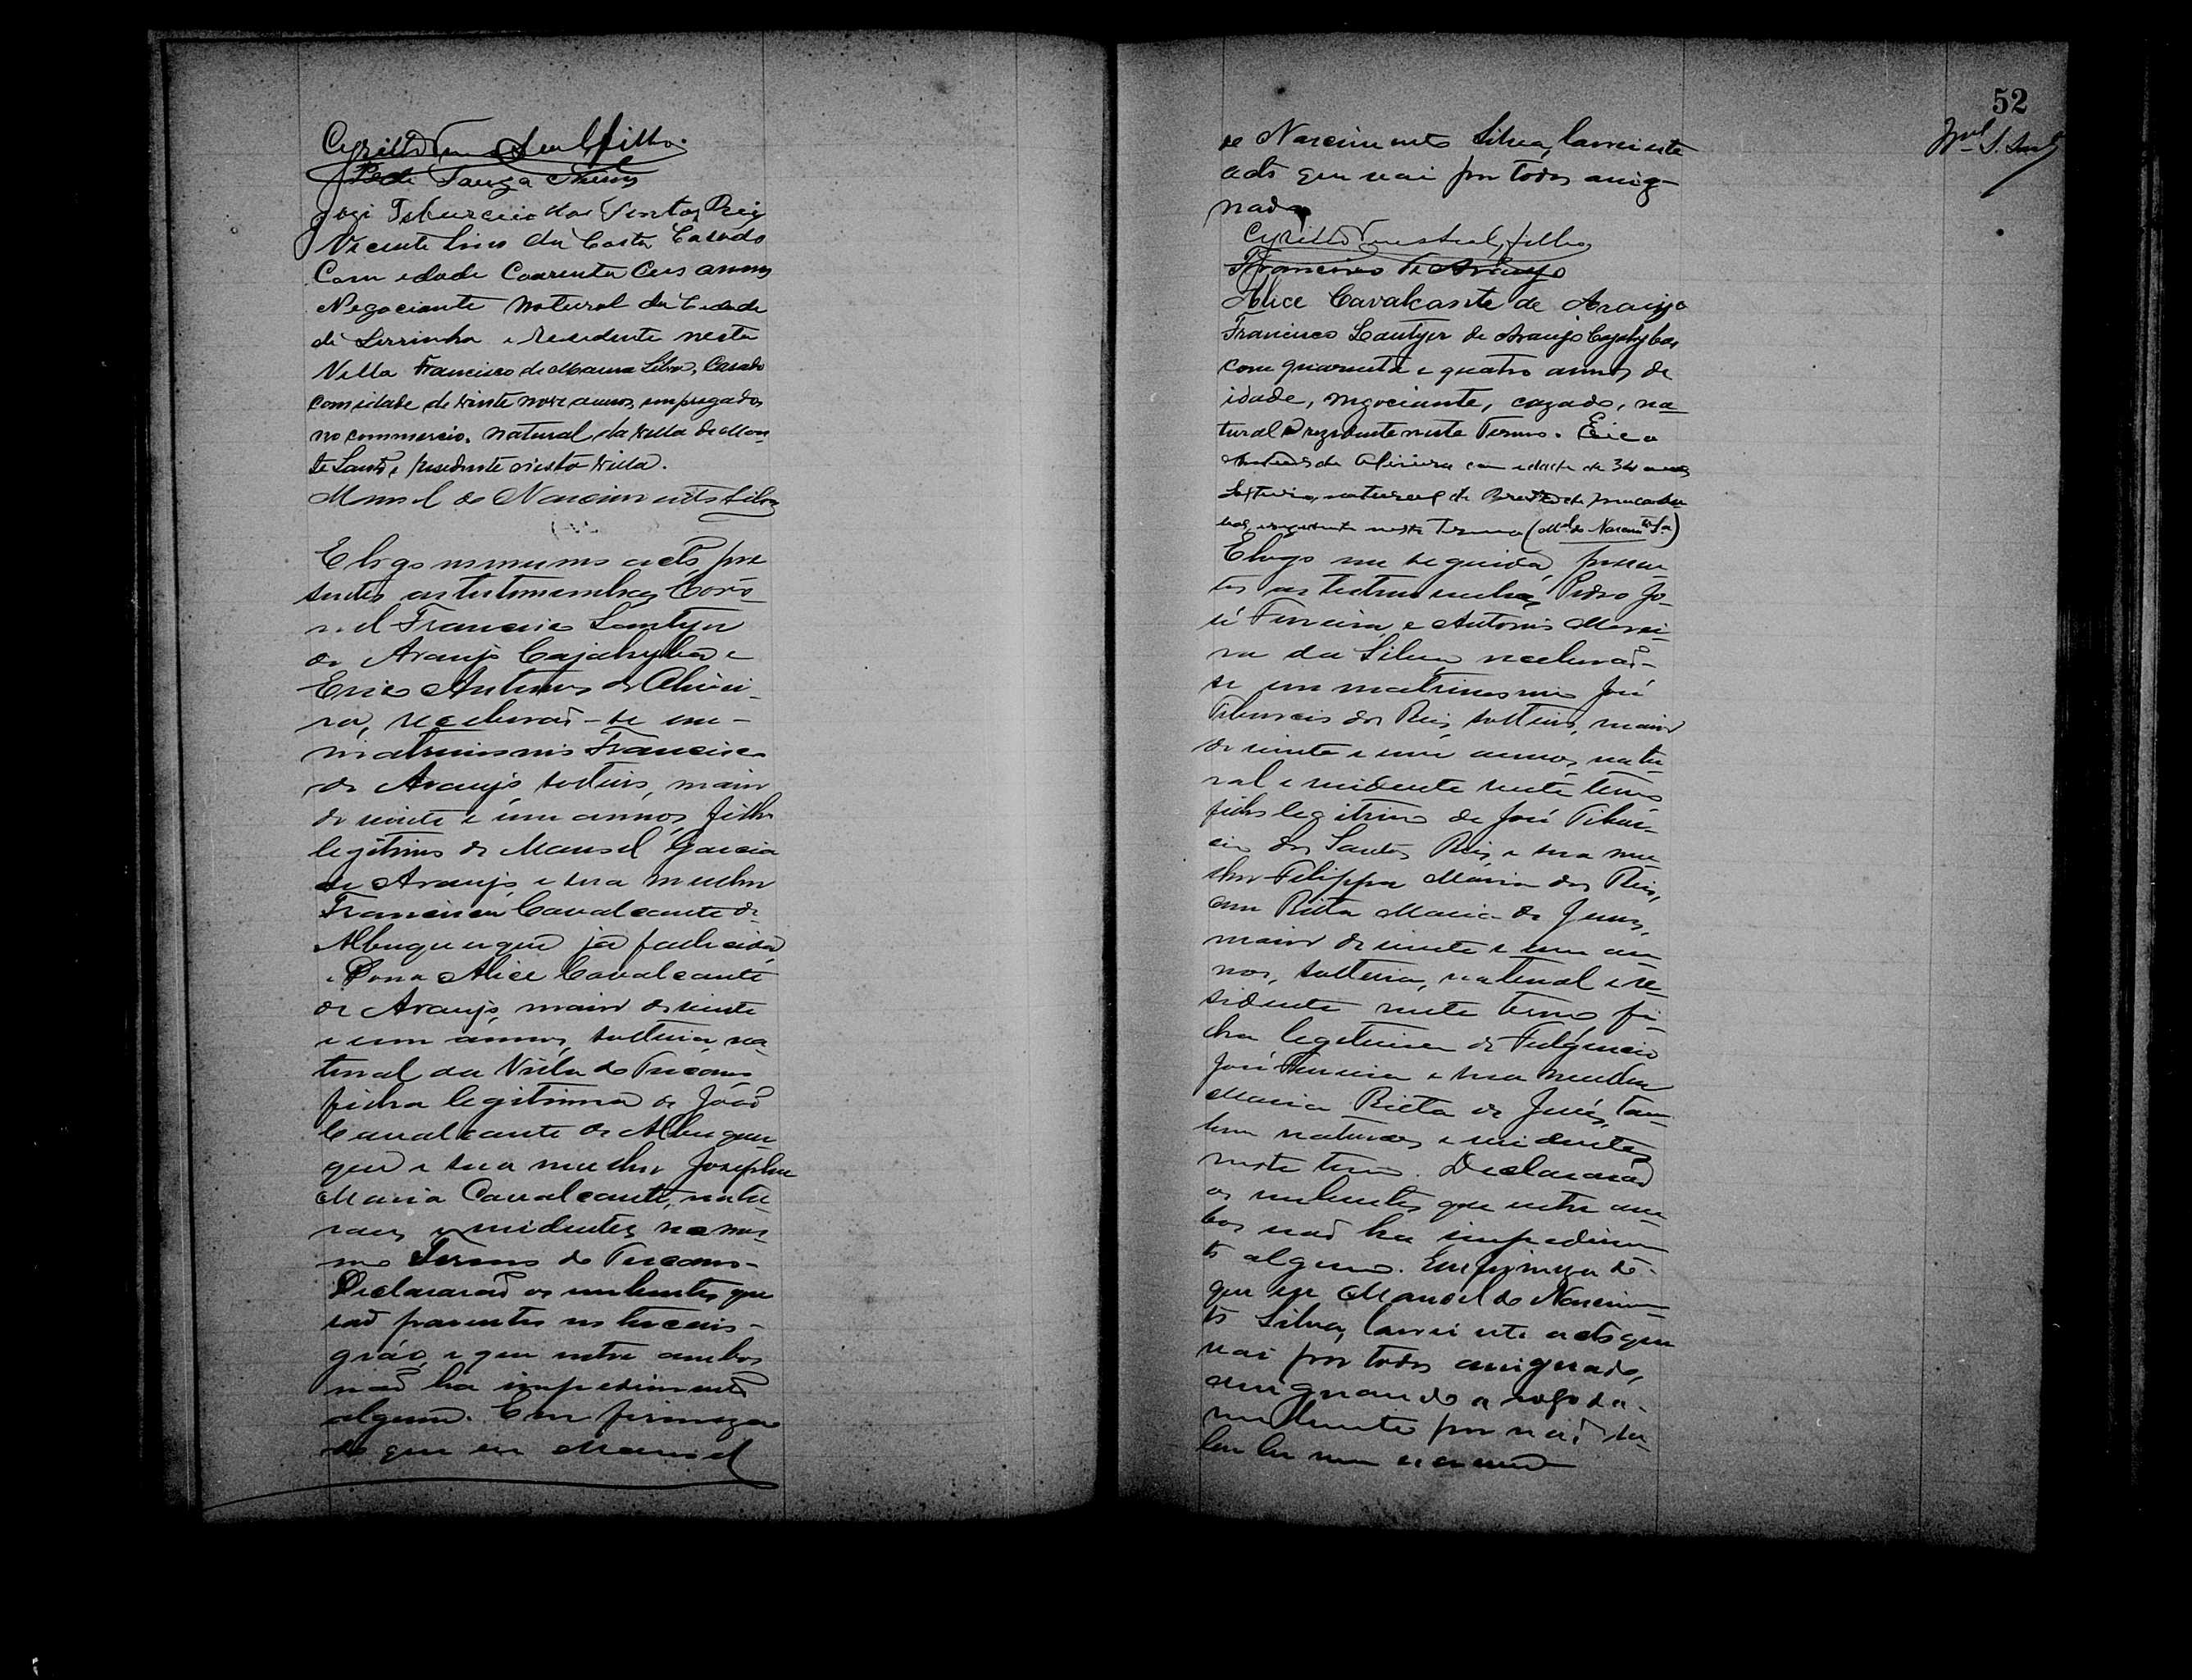 Cyrillo Leal filho.
José Tiburcio dos Santos Reis
Vicente Lino da Costa Casado
Com idade Coarenta Ceis annos
Negociante Natural da Cidade
de Serrinha e Resedente nesta
Villa Francisco de Moura Silva, Casado
com idade de vinte nove annos, empregado
no commercio, natural da villa de Mon
te Santo, e resedente nesta villa.
Manoel do Nascimento Silva
E logo no mesmo acto, pre
sentes as testemunhas Coro-
nel Francisco Lantyer
de Araujo Cajahyba e
Erico Antunes de Olivei-
ra, receberaõ-se em-
matrimonio Francisco
de Araujo solteiro, maior
de vinte e um annos, filho
legitimo de Manoel Garcia
de Araujo e sua mulher
Francisca Cavalcante de
Albuquerque já fallecida,
e Dona Alice Cavalcante
de Araujo, maior de vinte
e um annos, solteira, na-
tural da Villa de Tucano
filha legitima de João
Cavalcante de Albuquer
que e sua mulher Josepha
Maria Cavalcante, natu-
raes e residentes no mes-
mo Termo de Tucano-
Declararaõ os nubentes que
saõ parentes no terceiro-
gráo, e que entre ambos
naõ ha impedimento
algum. Em firmeza
do que eu Manoel
52
do Nascimento Silva, lavrei este
acto que vai por todos assig-
nado
Cyrillo Leal, filho
Francisco de Araujo
Alice Cavalcante de Araujo
Francisco Lantyer de Araujo Cajahyba,
com quarenta e quatro annos de
idade, negociante, cazado, na
tural e rezidente neste Termo. Erico
Antunes de Oliveira com edade de 34 annos
natural de
neste Termo (Mel do Nascimto Sa)
E logo em seguida, presen-
tes as testemunhas Pedro Jo-
sé Ferreira e Antonio Morei-
ra da Silva receberaõ-
se em matrimonio José
Tiburcio dos Reis, solteiro, maior
de vinte e um annos, natu-
ral e residente neste termo
filho legitimo de José Tibur-
cio dos Santos Reis e sua mu-
lher Filippa Maria dos Reis,
com Rita Maria de Jesus,
maior de vinte e um an-
nos, solteira, natural e re-
sidente neste termo fi-
lha legitima de Fulgencio
José Ferreira e sua mulher
Maria Rita de Jesus, tam-
bem naturaes e residentes
neste termo. Declararaõ
os nubentes que entre am-
bos naõ ha impedimen-
to algum. Em firmeza do-
que eu Manoel do Nascimen-
to Silva, lavrei este acto que
vai por todos assignado,
assignando a rogo da-
nubente por naõ sa-
ber ler nem escrever